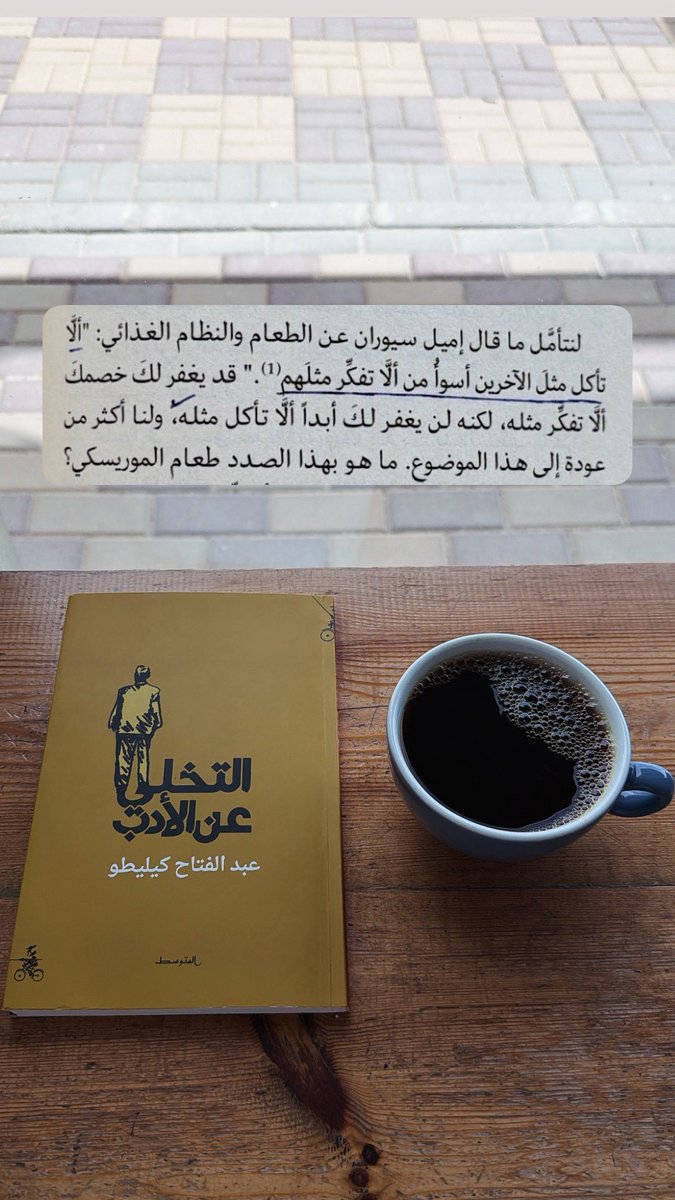 لنتأمَّل ما قال إميل سيوران عن الطعام والنظام الغذائي: "ألَّا
تأكل مثلَ الآخرين أسوأُ من ألَّا تفكِّر مثلَهم(1)." قد يغفر لكَ خصمكَ
ألَّا تفكِّر مثله، لكنه لن يغفر لكَ أبداً ألَّا تأكل مثله، ولنا أكثر من
عودة إلى هذا الموضوع. ما هو بهذا الصدد طعام الموريسكي؟
التخلي
عن الأدب
عبد الفتاح كيليطو
المتوسط